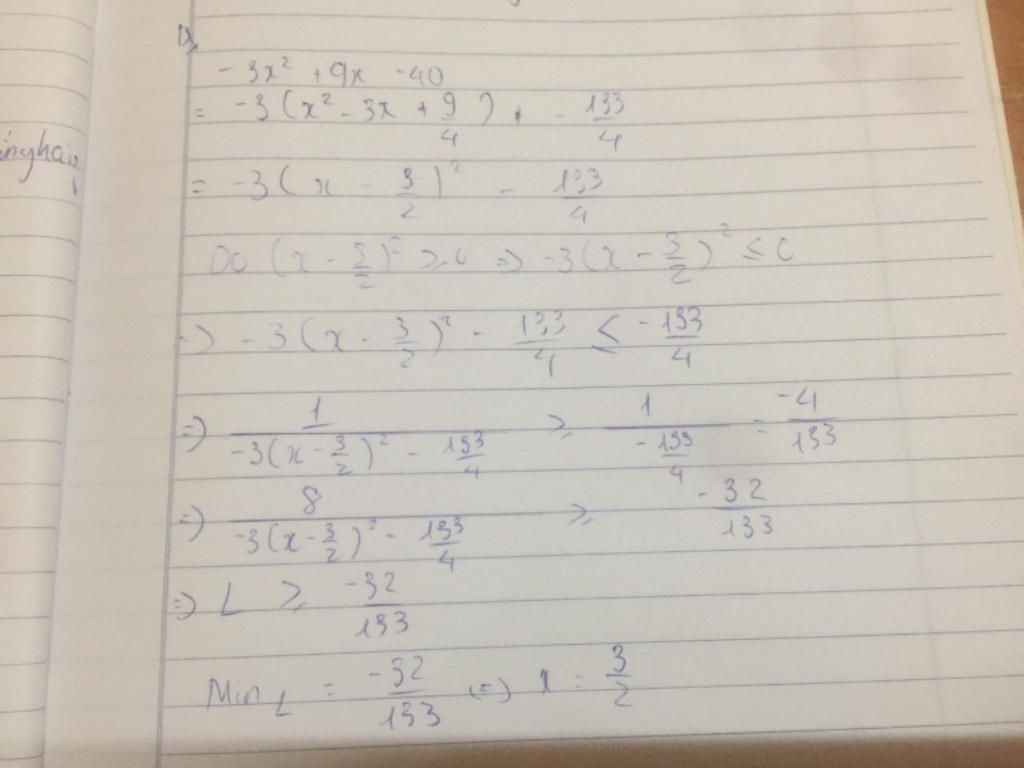 D,
-3x² + 9x - 40
= -3(x² - 3x + 9/4) - 133/4
= -3(x - 3/2)² - 133/4
Do (x - 3/2)² ≥ 0 => -3(x - 3/2)² ≤ 0
=> -3(x - 3/2)² - 133/4 ≤ -133/4
=> 1/(-3(x - 3/2)² - 133/4) ≥ 1/(-133/4) = -4/133
=> 8/(-3(x - 3/2)² - 133/4) ≥ -32/133
=> L ≥ -32/133
Min L = -32/133 (=) x = 3/2